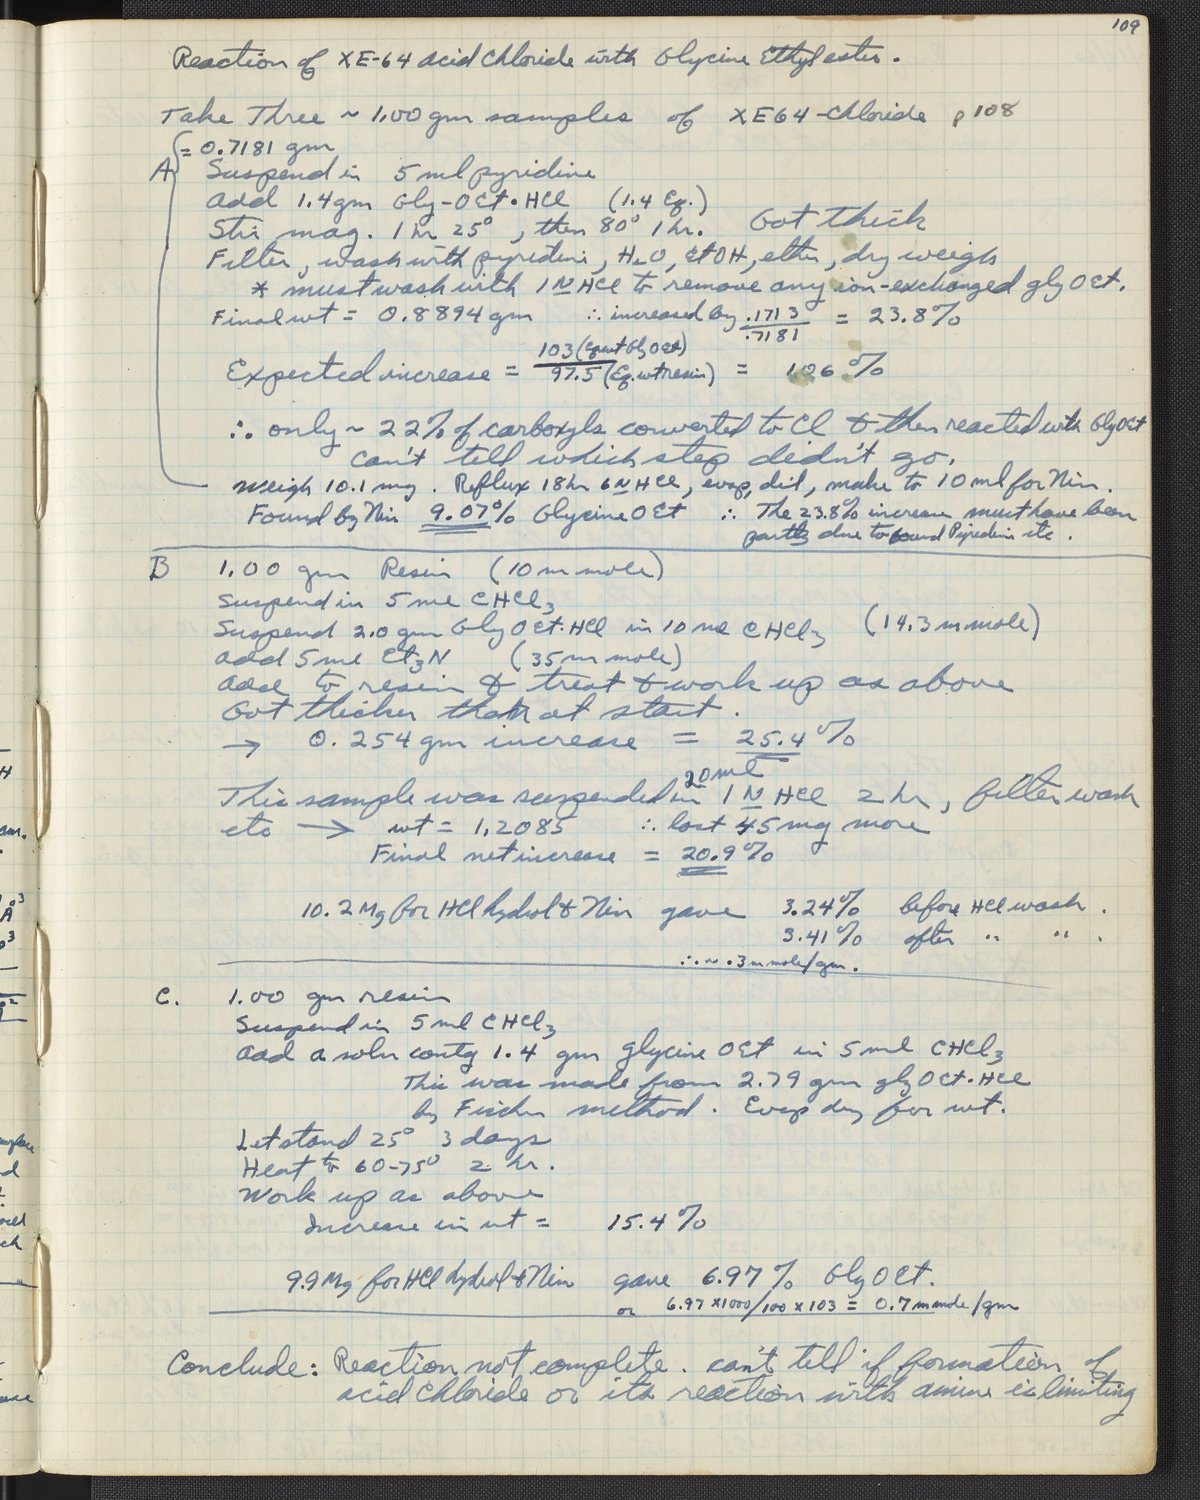 109
Reaction of XE-64 acid chloride with Glycine Ethyl ester.
Take Three ~ 1.00 gm samples of XE64-Chloride p 108
= 0.7181 gm
A Suspend in 5 ml pyridine
add 1.4 gm Gly-OEt·HCl (1.4 Eq.)
Stir mag. 1 hr 25°, then 80° 1 hr. Got thick
Filter, wash with pyridine, H2O, EtOH, ether, dry weigh
* must wash with 1 N HCl to remove any ion-exchanged gly OEt.
Final wt = 0.8894 gm ∴ increased by .1713/.7181 = 23.8%
Expected increase = 103 (Eq wt Gly OEt)/97.5 (Eq. wt resin) = 106 %
∴ only ~ 22% of carboxyls converted to Cl & then reacted with Gly OEt
can't tell which step didn't go.
Weigh 10.1 mg. Reflux 18 hr 6 N HCl, evap, dil, make to 10 ml for Nin.
Found by Nin 9.07% Glycine OEt ∴ The 23.8% increase must have been
partly due to bound Pyridine etc.
B 1.00 gm Resin (10 m mole)
Suspend in 5 ml CHCl3
Suspend 2.0 gm Gly OEt·HCl in 10 ml CHCl3 (14.3 m mole)
add 5 ml Et3N (35 m mole)
add to resin & treat & work up as above
Got thicker than at start.
→ 0.254 gm increase = 25.4%
This sample was suspended in 20 ml 1 N HCl 2 hr, filter wash
etc → wt = 1.2085 ∴ lost 45 mg more
Final net increase = 20.9%
10.2 Mg for HCl hydrol & Nin gave 3.24% before HCl wash.
3.41% after " " .
∴ ~ .3 m mole/gm.
C. 1.00 gm resin
Suspend in 5 ml CHCl3
Add a soln contg 1.4 gm glycine OEt in 5 ml CHCl3
This was made from 2.79 gm gly OEt·HCl
by Fischer method. Evap dry for wt.
Let stand 25° 3 days
Heat to 60-75° 2 hr.
Work up as above
Increase in wt = 15.4%
9.9 Mg for HCl hydrol & Nin gave 6.97% Gly OEt.
or 6.97 x 1000/100 x 103 = 0.7 m mole/gm
Conclude: Reaction not complete. can't tell if formation of
acid chloride or its reaction with amine is limiting